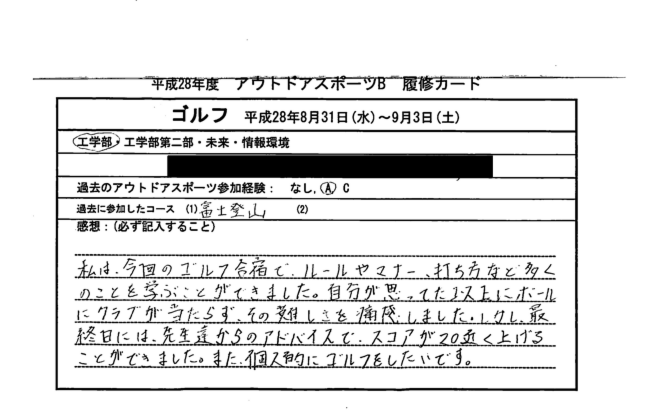 平成28年度 アウトドアスポーツB 履修カード
ゴルフ 平成28年8月31日(水)～9月3日(土)
工学部・工学部第二部・未来・情報環境
過去のアウトドアスポーツ参加経験： なし, A C
過去に参加したコース (1)富士登山 (2)
感想：(必ず記入すること)
私は、今回のゴルフ合宿で、ルールやマナー、打ち方など多く
のことを学ぶことができました。自分が思ってた以上にボール
にクラブが当たらず、その難しさを痛感しました。しかし、最
終日には、先生達からのアドバイスで、スコアが20近く上げる
ことができました。また、個人的にゴルフをしたいです。